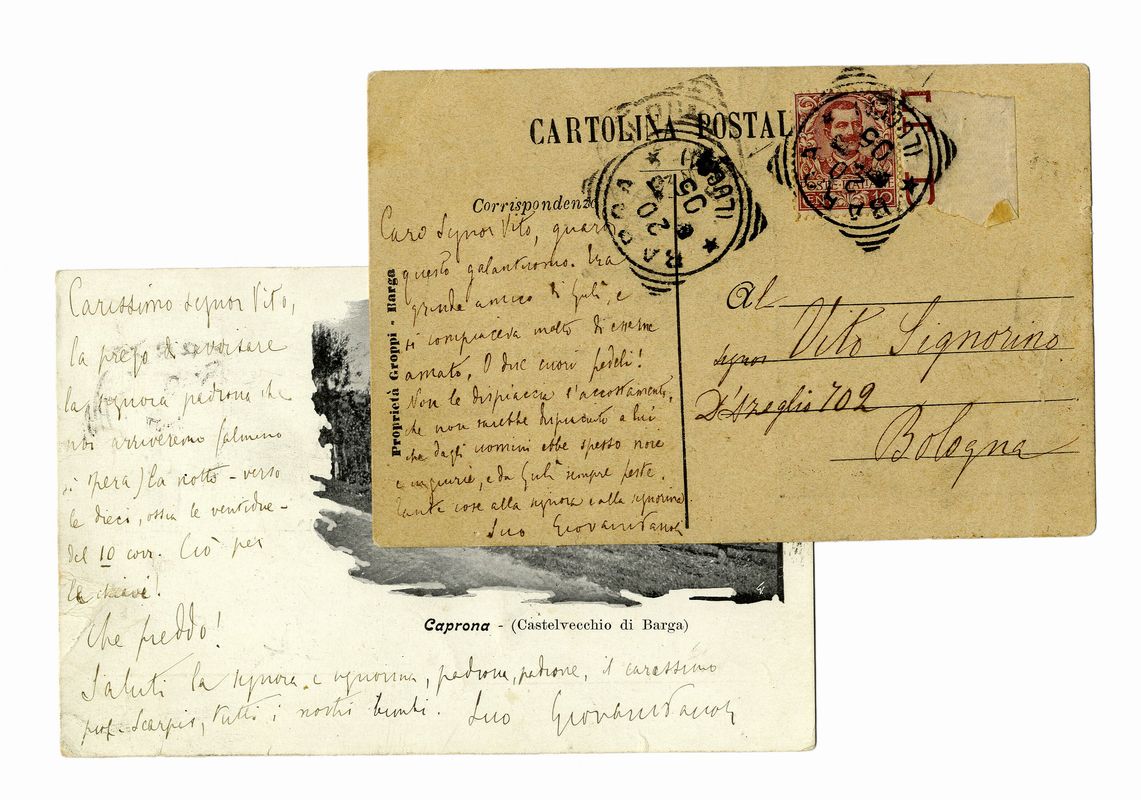 CARTOLINA POSTAL
Corrispondenza
Proprietà Groppi - Barga
Caro Signor Vito, guardi
questo galantuomo. Era
grande amico di Gulì, e
si compiaceva molto di esserne
amato. O due cuori fedeli!
Non le dispiaccia l'accostamento,
che non sarebbe dispiaciuto a lui
che dagli uomini ebbe spesso noie
e ingiurie, e da Gulì sempre feste.
Tante cose alla signora e alla signorina.
Suo Giovanni Pascoli
BARGA
20
05
BARGA
20
05
POSTE ITALIANE
CENT 10
Al
Signor Vito Signorino
D'Azeglio 102
Bologna
Carissimo signor Vito,
la prego di avvisare
la signora padrona che
noi arriveremo (almeno
si spera) la notte - verso
le dieci, ossia le ventidue -
del 10 corr. Ciò per
le chiavi!
Che freddo!
Saluti la signora e signorina, padrona, padrone, il carissimo
prof. Scarpis, tutti i nostri bimbi. Suo Giovanni Pascoli
4
Caprona - (Castelvecchio di Barga)